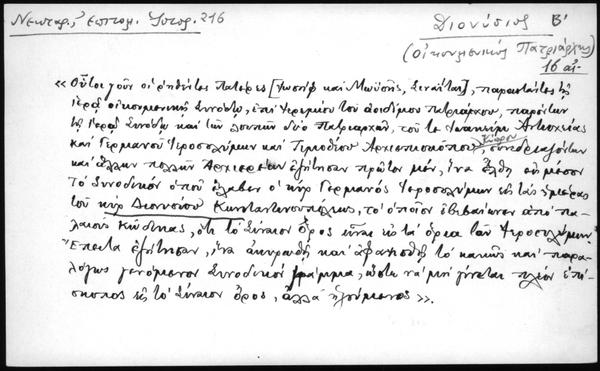 Νεκταρ., Επιτομ. Ιστορ. 216
Διονύσιος Β'
(Οἰκουμενικός Πατριάρχης)
16 αἰ.
« Οὗτοι γοῦν οἱ ῥηθέντες πατέρες [Ἰωσήφ καὶ Μωϋσῆς, Σιναῖται], παραστάντες τῇ
ἱερᾷ οἰκουμενικῇ Συνόδῳ, ἐπὶ Ἱερεμίου τοῦ ἀοιδίμου πατριάρχου, παρόντων
τῇ ἱερᾷ Συνόδῳ καὶ τῶν λοιπῶν δύο Πατριαρχῶν, τοῦ τε Ἰωακείμ Ἀντιοχείας
καὶ Γερμανοῦ Ἱεροσολύμων καὶ Τιμοθέου Ἀρχιεπισκόπου Κύπρου, συνεδριαζόντων
καὶ ἄλλων πολλῶν Ἀρχιερέων ἐζήτησαν πρῶτον μέν, ἵνα ἔλθῃ εἰς μέσον
τὸ Συνοδικόν ὁποῦ ἔλαβεν ὁ κὺρ Γερμανός Ἱεροσολύμων εἰς τὰς ἡμέρας
τοῦ κὺρ Διονυσίου Κωνσταντινουπόλεως, τὸ ὁποῖον ἐβεβαίωνεν ἀπὸ πα-
λαιούς κώδικας, ὅτι τὸ Σίναιον Ὄρος εἶναι εἰς τὰ ὅρια τῶν Ἱεροσολύμων.
Ἔπειτα ἐζήτησαν, ἵνα ἀκυρωθῇ καὶ ἀφανισθῇ τὸ κακῶς καὶ παρα-
λόγως γενόμενον Συνοδικόν γράμμα, ὥστε νὰ μὴ γίνεται πλέον ἐπί-
σκοπος εἰς τὸ Σίναιον ὄρος, ἀλλὰ ἡγούμενος ».